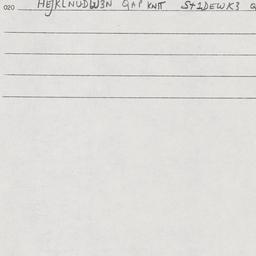 020 HEJKLNUDW3N QAP KNTT S+1DEWK3